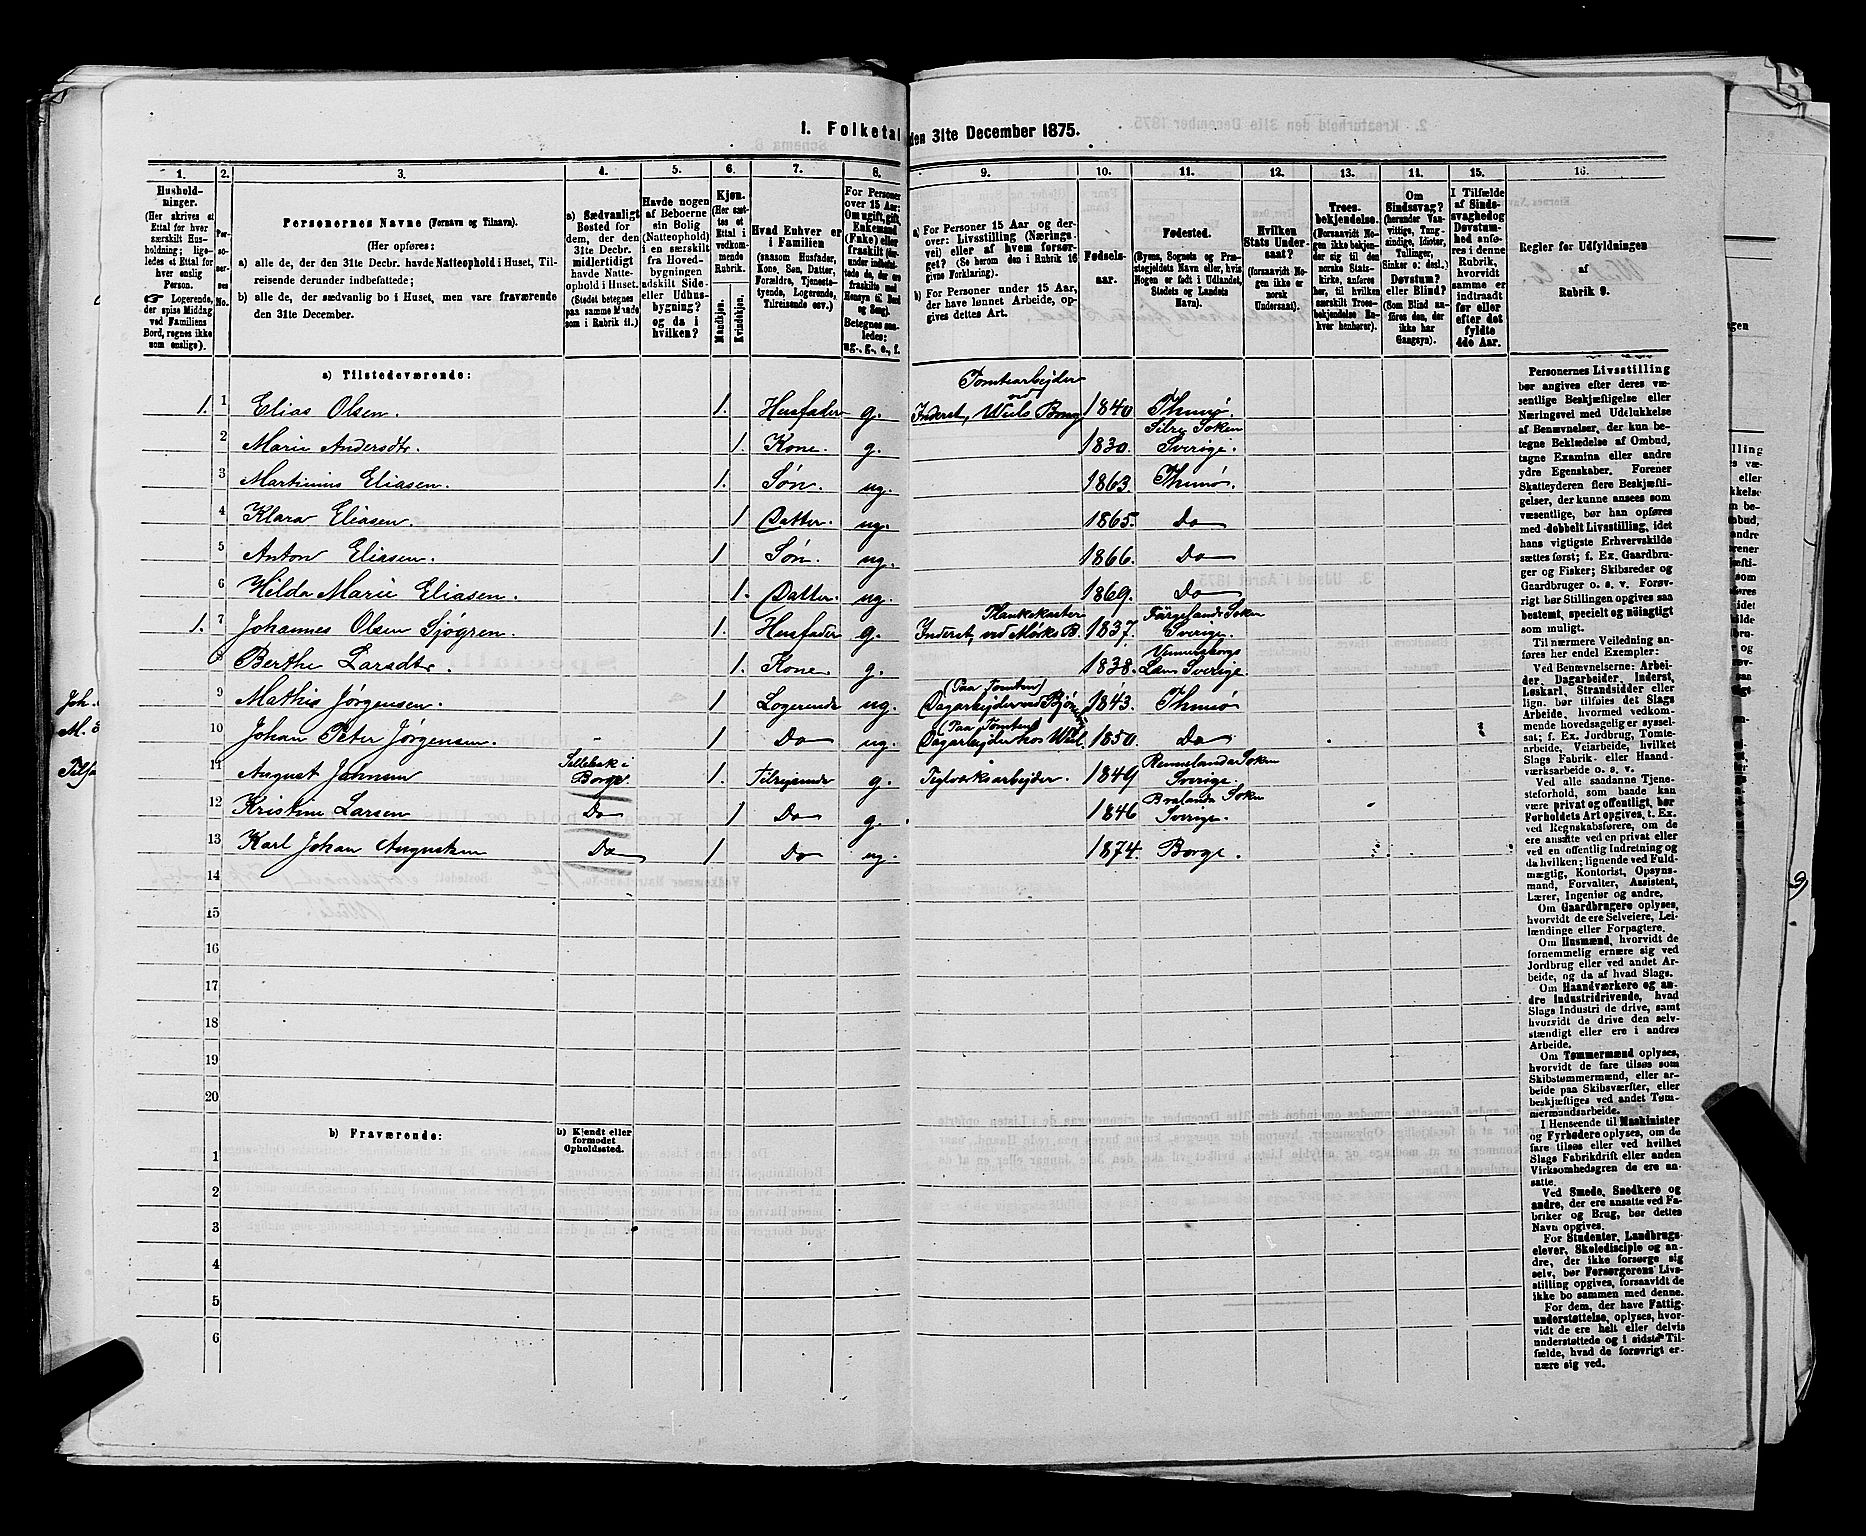 1. Folketal den 31te December 1875.
1. 2. 3. 4. 5. 6. 7. 8. 9. 10. 11. 12. 13. 14. 15. 16.
Hushold-
ninger.
(Her skrives et
Ettal for hver
særskilt Hus-
holdning; lige-
ledes et Ettal for
hver enslig
Person.
Logerende,
der spise Middag
ved Familiens
Bord, regnes ikke
som enslige).
Per-
so-
ner-
nes
No.
Personernes Navne (Fornavn og Tilnavn).
(Her opføres:
a) alle de, der den 31te Decbr. havde Natteophold i Huset, Til-
reisende derunder indbefattede;
b) alle de, der sædvanlig bo i Huset, men vare fraværende
den 31te December.
a) Sædvanligt
Bosted for
dem, der den
31te Decbr.
midlertidigt
havde Natte-
ophold i Huset.
(Stedet betegnes
paa samme Maade
som i Rubrik 11.)
Havde nogen
af Beboerne
sin Bolig
(Natteophold)
i en særskilt
fra Hoved-
bygningen
adskilt Side-
eller Udhus-
bygning?
og da i
hvilken?
Kjøn.
(Her sæt-
tes et
Ettal i
vedkom-
mende
Rubrik.
Mandkjøn.
Kvindekjøn.
Hvad Enhver er
i Familien
(saasom Husfader,
Kone, Søn, Datter,
Forældre, Tjeneste-
tyende, Logerende,
Tilreisende osv.)
For Personer
over 15 Aar:
Om ugift, gift,
Enkemand
(Enke) eller
fraskilt
Betegnes saa-
ledes:
ug., g., e., f.
a) For Personer 15 Aar og der-
over: Livsstilling (Nærings-
vei) eller af hvem forsør-
get? (Se herom den i Rubrik 16
givne Forklaring).
b) For Personer under 15 Aar,
der have lønnet Arbeide, op-
gives dettes Art.
Fødsels-
aar.
Fødested.
(Byens, Sognets og Præ-
stegjeldets Navn eller, hvis
Nogen er født i Udlandet,
Stedets og Landets
Navn).
Hvilken
Stats Under-
saat?
(forsaavidt No-
gen ikke er
norsk
Undersaat).
Troes-
bekjendelse.
(Forsaavidt No-
gen ikke bekjen-
der sig til den
norske Stats-
kirke, anføres
her, til hvilken
særskilt Troes-
bekjendelse En-
hver henhører).
Om
Sindssvag?
(herunder Van-
vittige, Tung-
sindige, Idioter,
Tullinger,
Sinker o: desl.)
Døvstum?
eller Blind?
(Som Blind an-
føres den, der
ikke har
Gangsyn).
I Tilfælde
af Sinds-
svaghed og
Døvstum-
hed anfø-
res i denne
Rubrik,
hvorvidt
samme er
indtraadt
før eller
efter det
fyldte
4de Aar.
Regler for Udfyldningen
af
Rubrik 9.
a) Tilstedeværende:
1. 1 Elias Olsen. 1. Husfader g. Tomtearbejder Inderst, ved Wiils Brug 1840 Thunø.
2 Marie Andersdtr. 1. Kone. g. 1830. Silre Soken Sverige.
3 Martinius Eliasen. 1. Søn. ug. 1863. Thunø.
4 Klara Eliasen. 1 Datter. ug. 1865. Do
5 Anton Eliasen. 1 Søn. ug. 1866. Do
6 Hilda Marie Eliasen. 1. Datter. ug. 1869. Do
1. 7 Johannes Olsen Sjøgren. 1. Husfader g. Plankekaster Inderst, ved Mørks B. 1837. Färgelanda Soken Sverige.
8 Berthe Larsdtr. 1. Kone g. 1838. Venersborgs Län Sverige.
9 Mathis Jørgensen. 1 Logerende ug. (Paa Tomten) Dagarbejder ved 1843. Thunø
10 Johan Peter Jørgensen. 1 Do ug. (Paa Tomten) Dagarbejder hos Wiil. 1850. Do
11 August Johnsen Sellebak i Borge. 1. Tilrejsende g. Teglværksarbejder. 1849 Rennelanda Soken Sverige.
12 Kristine Larsen Do 1 Do g. 1846 Bralanda Soken Sverige.
13 Karl Johan Augustsen Do 1 Do ug. 1874. Borge.
14
15
16
17
18
19
20
b) Fraværende:
b) Kjendt eller
formodet
Opholdssted.
1
2
3
4
5
6
Personernes Livsstilling
bør angives efter deres væ-
sentlige Beskjæftigelse eller
Næringsvei med Udelukkelse
af Benævnelser, der kun be-
tegne Beklædelse af Ombud,
tagne Examina eller andre
ydre Egenskaber. Forener
Skatteyderen flere Beskjæfti-
gelser, der kunne ansees som
væsentlige, bør han opføres
med dobbelt Livsstilling, idet
hans vigtigste Erhvervskilde
sættes først; f. Ex. Gaardbru-
ger og Fisker; Skibsreder og
Gaardbruger o. s. v. Forøv-
rigt bør Stillingen opgives saa
bestemt, specielt og nøiagtigt
som muligt.
Til nærmere Veiledning an-
føres her endel Exempler:
Ved Benævnelserne: Arbei-
der, Dagarbeider, Inderst,
Løskarl, Strandsidder eller
lign. bør tilføies det Slags
Arbeide, hvormed vedkom-
mende hovedsagelig er syssel-
sat; f. Ex. Jordbrug, Tomte-
arbeide, Veiarbeide, hvilket
Slags Fabrik- eller Haand-
værksarbeide o. s. v.
Ved alle saadanne Tjene-
steforhold, som baade kan
være privat og offentligt, bør
Forholdets Art opgives, t. Ex.
ved Regnskabsførere, om de
ere ansatte ved en privat eller
ved en offentlig Indretning og
da hvilken; lignende ved Fuld-
mægtig, Kontorist, Opsyns-
mand, Forvalter, Assistent,
Lærer, Ingeniør og andre.
Om Gaardbrugere oplyses,
hvorvidt de ere Selveiere, Lei-
lændinge eller Forpagtere.
Om Husmænd, hvorvidt de
fornemmelig ernære sig ved
Jordbrug eller ved andet Ar-
beide, og da af hvad Slags.
Om Haandværkere og an-
dre Industridrivende, hvad
Slags Industri de drive, samt
hvorvidt de drive den selv-
stændigt eller ere i andres
Arbeide.
Om Tømmermænd oplyses,
hvorvidt de fare tilsøs som
Skibstømmermænd, eller ar-
beide paa Skibsværfter, eller
beskjæftiges ved andet Tøm-
mermandsarbeide.
I Henseende til Maskinister
og Fyrbødere oplyses, om de
fare tilsøs eller ved hvilket
Slags Fabrikdrift eller anden
Virksomhedsgren de ere an-
satte.
Ved Smede, Snedkere og
andre, der ere ansatte ved Fa-
briker og Brug, bør dettes
Navn opgives.
For Studenter, Landbrugs-
elever, Skoledisciple og an-
dre, der ikke forsørge sig
selv, bør Forsørgerens Livs-
stilling opgives, forsaavidt de
ikke bo sammen med denne.
For dem, der have Fattig-
understøttelse, oplyses, hvor-
vidt de ere helt eller delvis
understøttede og i sidste Til-
fælde, hvad de forøvrigt er-
nære sig ved.